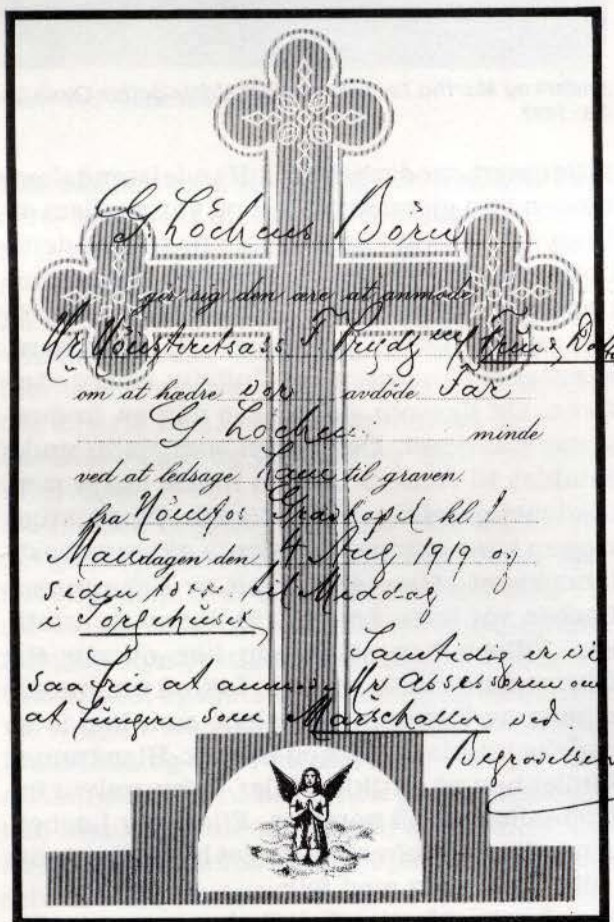 G. Lochens Börn
gir sig den ære at anmode
Hr. F
om at hædre vor avdöde Far
G. Lochens minde
ved at ledsage ham til graven.
fra Gravkapel kl. 1
Mandagen den 4 Aug 1919 og
siden som til Middag
i Sörgehuset
Samtidig er vi
saa frie at anmode Hr. Assessoren om
at fungere som Marschaller ved
Begravelsen